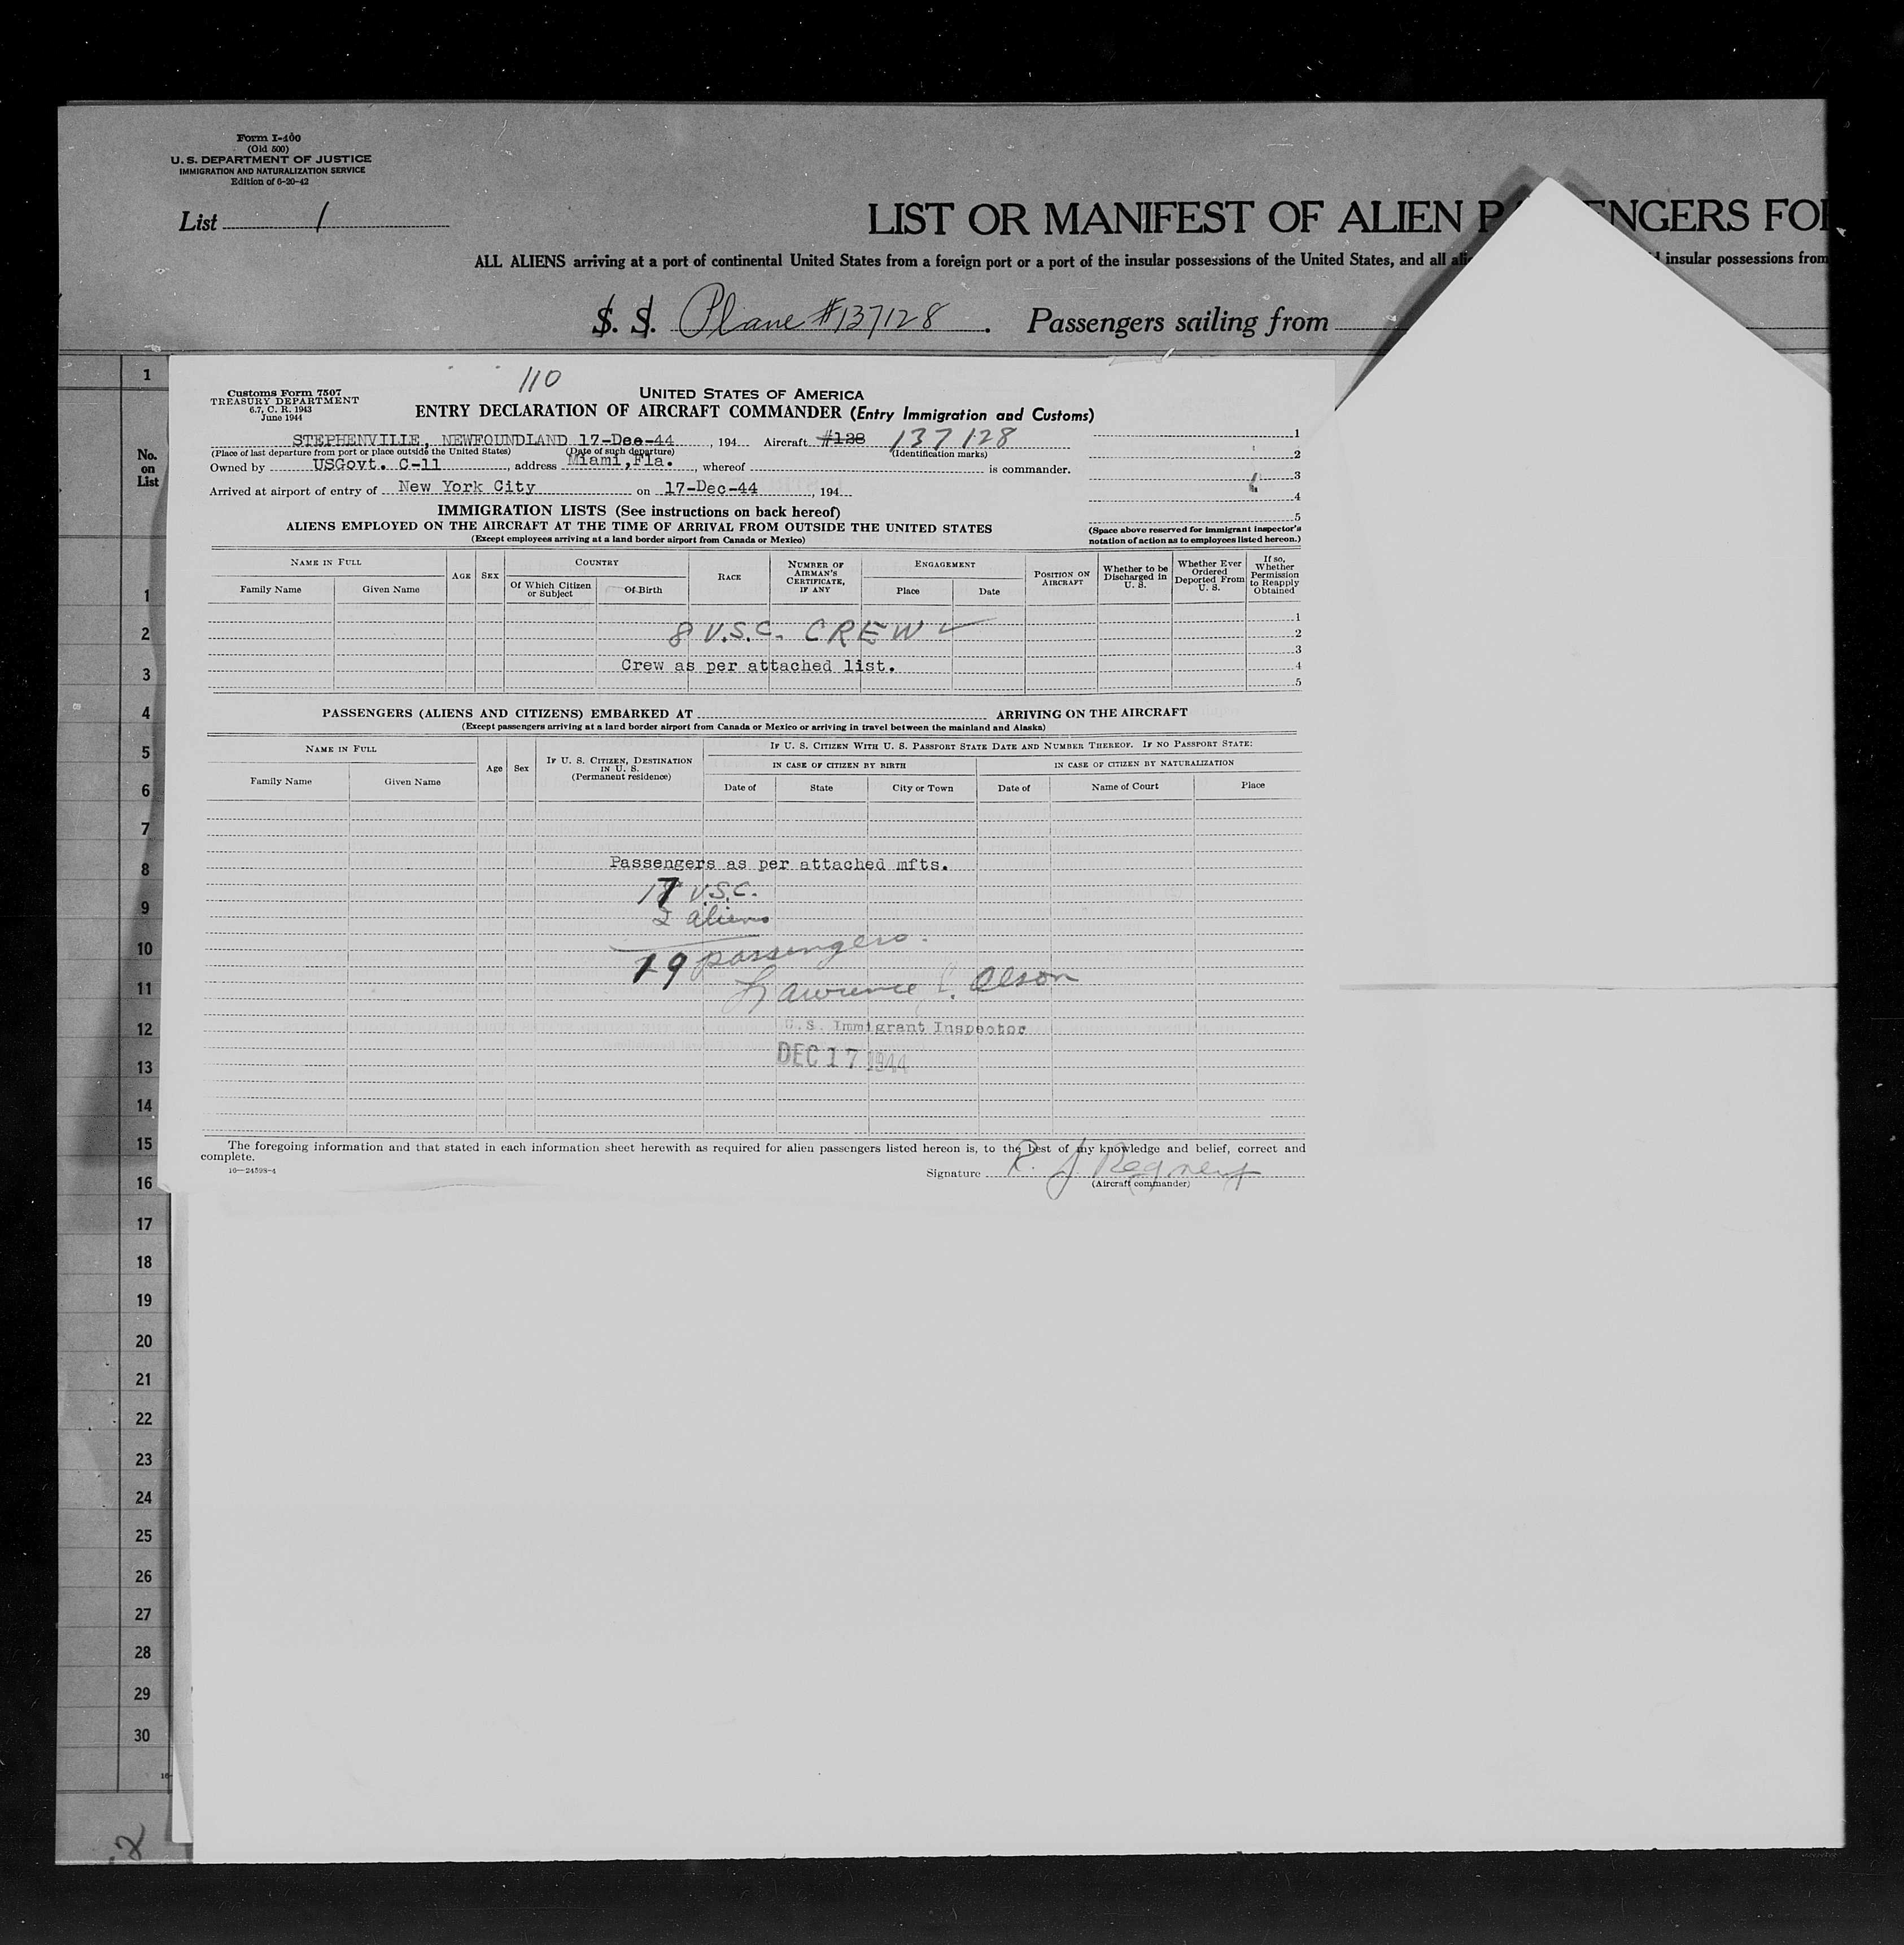 Form I-400
(Old 500)
U. S. DEPARTMENT OF JUSTICE
IMMIGRATION AND NATURALIZATION SERVICE
Edition of 6-20-42
List 1
LIST OR MANIFEST OF ALIEN P NGERS FO
ALL ALIENS arriving at a port of continental United States from a foreign port or a port of the insular possessions of the United States, and all insular possessions from
S. S. Plane #137128 . Passengers sailing from
110
Customs Form 7507
TREASURY DEPARTMENT
6.7, C. R. 1943
June 1944
UNITED STATES OF AMERICA
ENTRY DECLARATION OF AIRCRAFT COMMANDER (Entry Immigration and Customs)
STEPHENVILLE, NEWFOUNDLAND 17-Dec-44, 194 Aircraft #128 137128
(Place of last departure from port or place outside the United States) (Date of such departure) (Identification marks)
Owned by USGovt. C-11, address Miami,Fla., whereof is commander.
Arrived at airport of entry of New York City on 17-Dec-44, 194
1
2
3
4
5
IMMIGRATION LISTS (See instructions on back hereof)
ALIENS EMPLOYED ON THE AIRCRAFT AT THE TIME OF ARRIVAL FROM OUTSIDE THE UNITED STATES
(Except employees arriving at a land border airport from Canada or Mexico)
(Space above reserved for immigrant inspector's notation of action as to employees listed hereon.)
NAME IN FULL
Family Name
Given Name
AGE
SEX
COUNTRY
Of Which Citizen or Subject
Of Birth
RACE
NUMBER OF AIRMAN'S CERTIFICATE, IF ANY
ENGAGEMENT
Place
Date
POSITION ON AIRCRAFT
Whether to be Discharged in U. S.
Whether Ever Ordered Deported From U. S.
If so, Whether Permission to Reapply Obtained
1
2
3
4
5
8 U.S.C. CREW ✓
Crew as per attached list.
PASSENGERS (ALIENS AND CITIZENS) EMBARKED AT ARRIVING ON THE AIRCRAFT
(Except passengers arriving at a land border airport from Canada or Mexico or arriving in travel between the mainland and Alaska)
NAME IN FULL
Family Name
Given Name
Age
Sex
IF U. S. CITIZEN, DESTINATION IN U. S.
(Permanent residence)
IF U. S. CITIZEN WITH U. S. PASSPORT STATE DATE AND NUMBER THEREOF. IF NO PASSPORT STATE:
IN CASE OF CITIZEN BY BIRTH
IN CASE OF CITIZEN BY NATURALIZATION
Date of
State
City or Town
Date of
Name of Court
Place
Passengers as per attached mfts.
17 U.S.C.
2 aliens
19 passengers.
Lawrence Olson
U.S. Immigrant Inspector
DEC 17 1944
The foregoing information and that stated in each information sheet herewith as required for alien passengers listed hereon is, to the best of my knowledge and belief, correct and
complete.
16—24598-4
Signature R. J. Regnery
(Aircraft commander)
No. on List
1
1
2
3
4
5
6
7
8
9
10
11
12
13
14
15
16
17
18
19
20
21
22
23
24
25
26
27
28
29
30
16
2